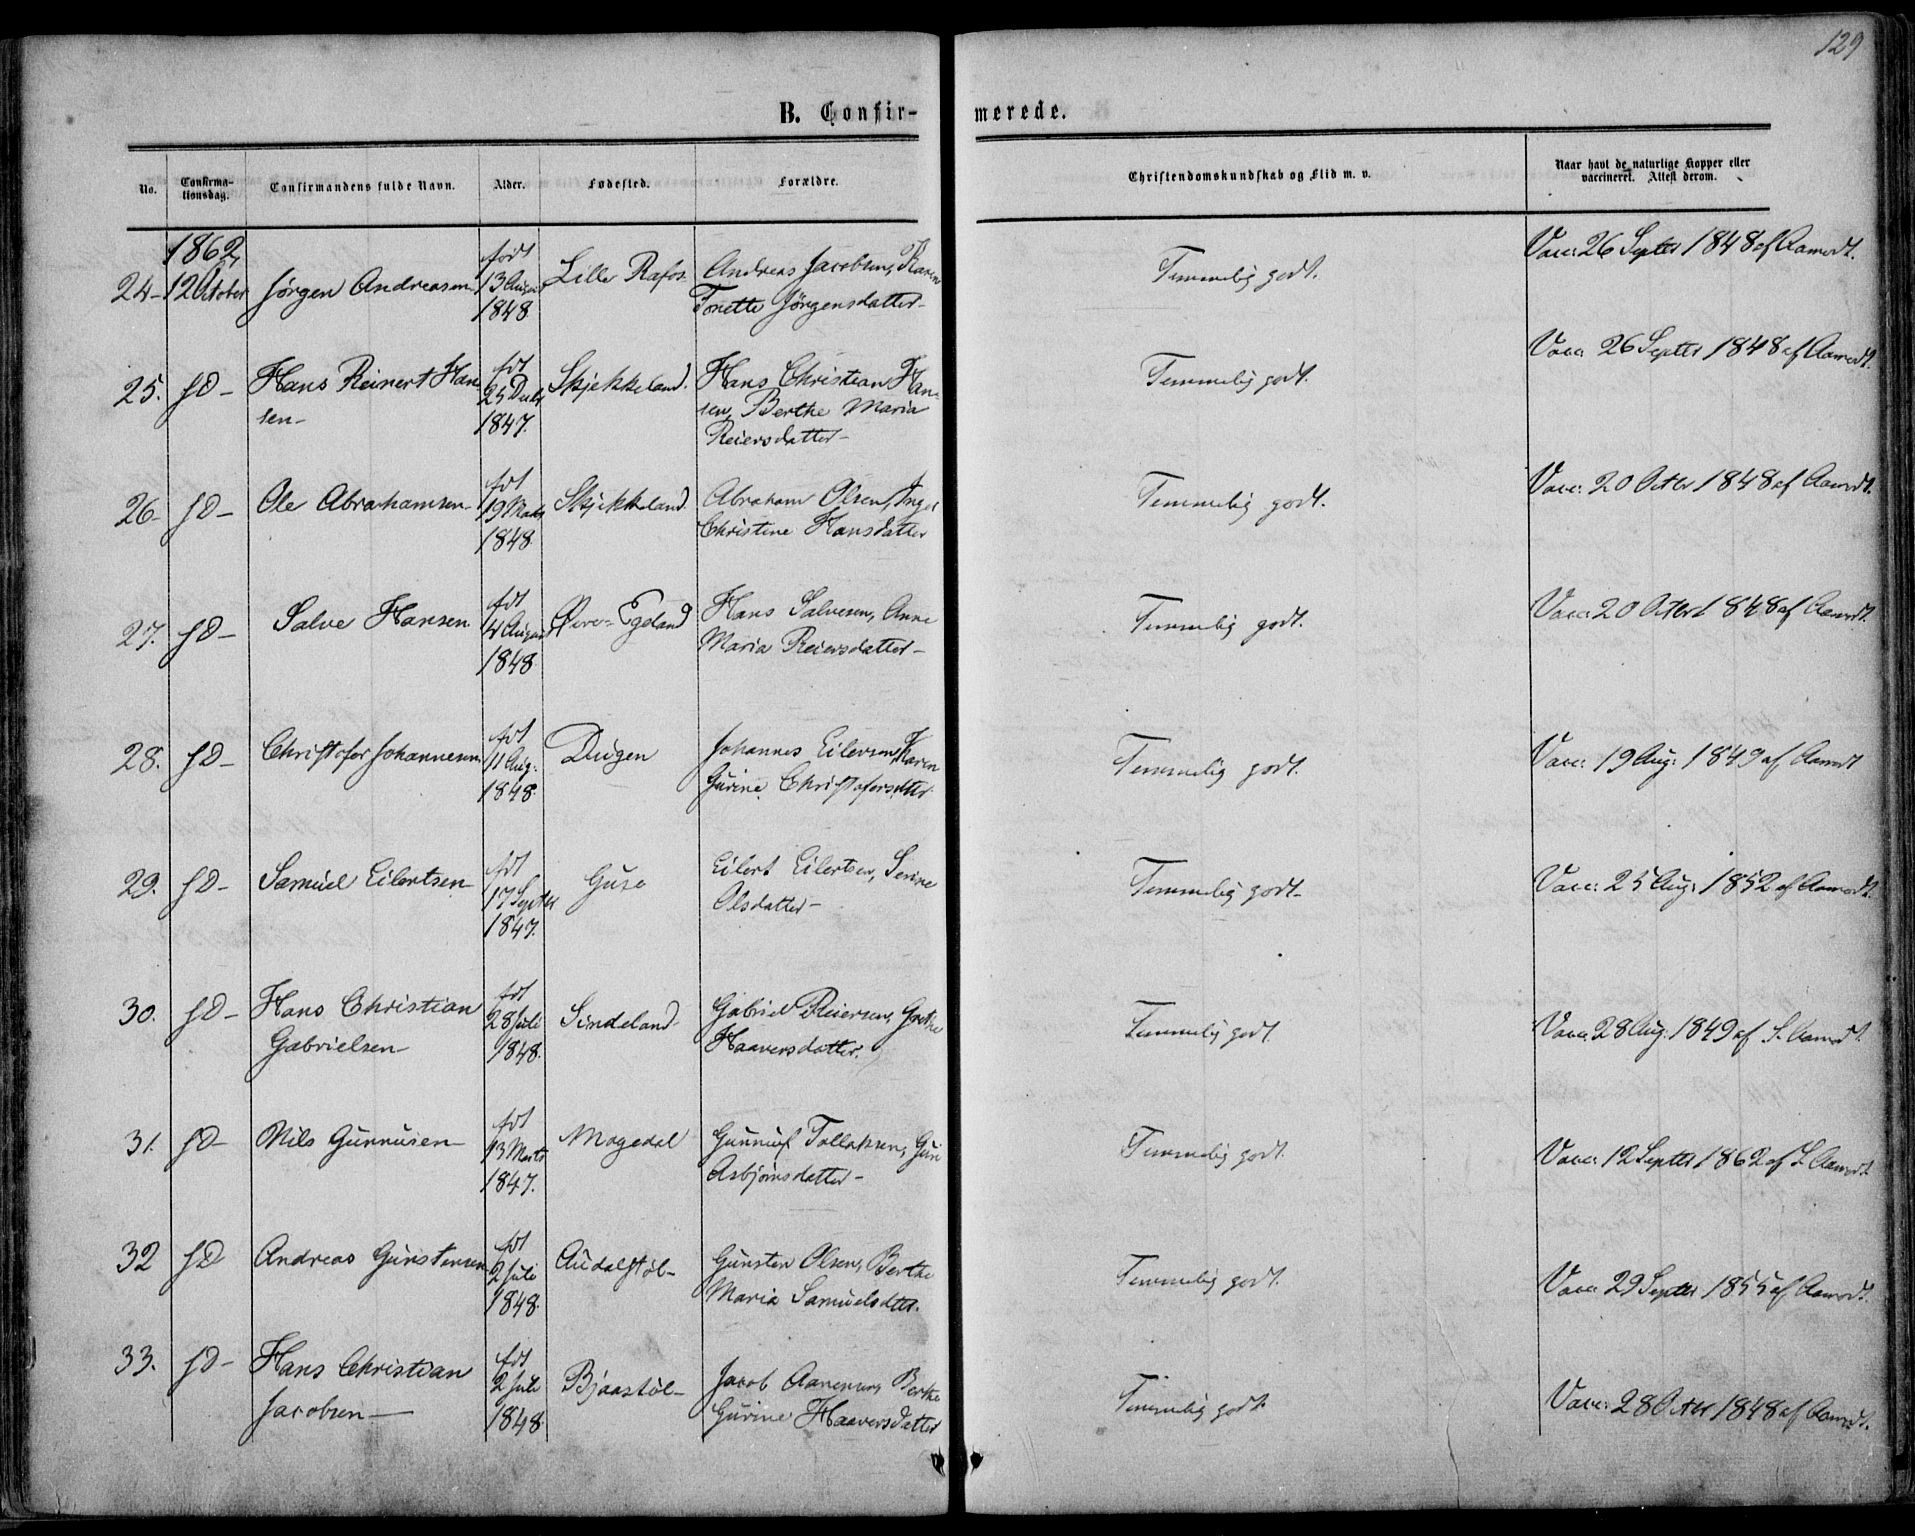 129
B. Confir- merede.
No. Confirma- tionsdag. Confirmandens fulde Navn. Alder. Fødested. Forældre. Christendomskundskab og Flid m. v. Naar havt de naturlige Kopper eller vaccineret. Attest derom.
1862,
24- 12 October Jørgen Andreasen født 13 August 1848 Lille Rafos Andreas Jacobsen, Karen
Tonette Jørgensdatter- Temmelig godt. Vacc: 26 Septbr 1848 af Aamodt.
25. fD- Hans Reinert Han-
sen- fdt 25 Decbr 1847. Skjekkeland. Hans Christian Han-
sen, Berthe Maria
Reiersdatter- Temmelig godt. Vacc: 26 Septbr 1848 af Aamodt.
26- fD- Ole Abrahamsen- fdt 19 Marts 1848 Skjekkeland. Abraham Olsen, Inger
Christine Hansdatter Temmelig godt. Vacc: 20 Octbr 1848 af Aamodt.
27. fD- Salve Hansen fdt 4 August 1848 Øvre-Egeland Hans Salvesen, Anne
Maria Reiersdatter- Temmelig godt. Vacc: 20 Octbr 1848 af Aamodt.
28. fD- Christofer Johannesen fdt 11 Aug: 1848. Dugen Johannes Eilevsen, Karen
Gurine Christofersdtter Temmelig godt. Vacc: 19 Aug: 1849 af Aamodt
29. fD- Samuel Eilertsen- fdt 17 Septbr 1847. Guse Eilert Eilertsen, Serine
Olsdatter- Temmelig godt- Vacc: 25 Aug: 1852 af Aamodt.
30. fD- Hans Christian
Gabrielsen- fdt 28 Juli 1848. Sindeland- Gabriel Reiersen, Grethe
Haaversdatter. Temmelig godt. Vacc: 28 Aug: 1849 af S. Aamodt.
31. fD- Nils Gunnusen- fdt 13 Marts 1847. Mogedal Gunnuf Tollaksen, Guri
Asbjørnsdatter- Temmelig godt. Vacc: 12 Septbr 1862 af S. Aamodt.
32 fD Andreas Gunstensen fdt 2 Juli 1848. Audalstøl- Gunsten Olsen, Berthe
Maria Samuelsdttr. Temmelig godt. Vacc: 29 Septbr 1855 af Aamodt.
33. fD- Hans Christian
Jacobsen- fdt 2 Juli 1848. Bjaastøl- Jacob Aanensen, Berthe
Gurine Haaversdatter Temmelig godt. Vacc: 28 Octbr 1848 af Aamodt.